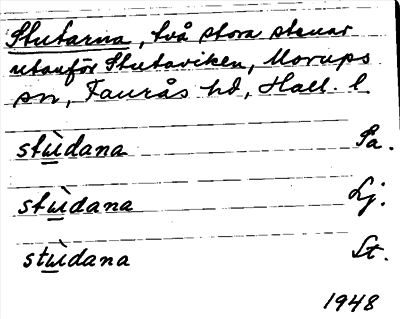 Stutarna, två stora stenar
utanför Stutaviken, Morups
sn, Faurås hd, Hall. l.
stù̲dana Sa.
stù̲dana Lj.
stù̲dana St.
1948